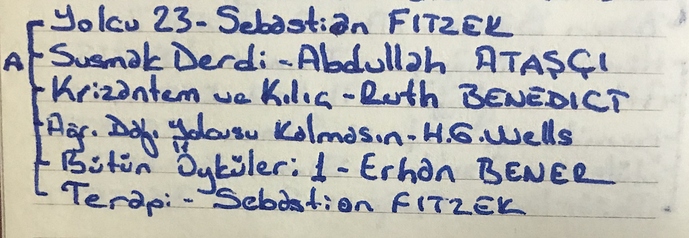 Yolcu 23 - Sebastian FITZEK
A Susmak Derdi - Abdullah ATAŞÇI
Krizantem ve Kılıç - Ruth BENEDICT
Ağr. Dağ. Yolcusu Kalmasın - H.G. Wells
Bütün Öyküleri 1 - Erhan BENER
Terapi - Sebastian FITZEK